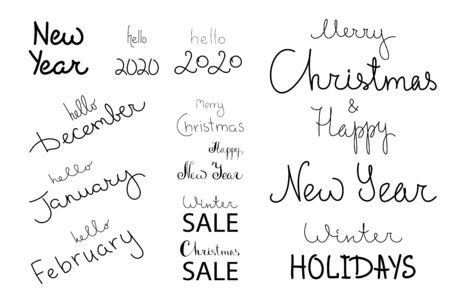 New
Year
hello
December
hello
January
hello
February
hello
2020
hello
2020
Merry
Christmas
Happy
New Year
Winter
SALE
Christmas
SALE
Merry
Christmas
&
Happy
New Year
Winter
HOLIDAYS